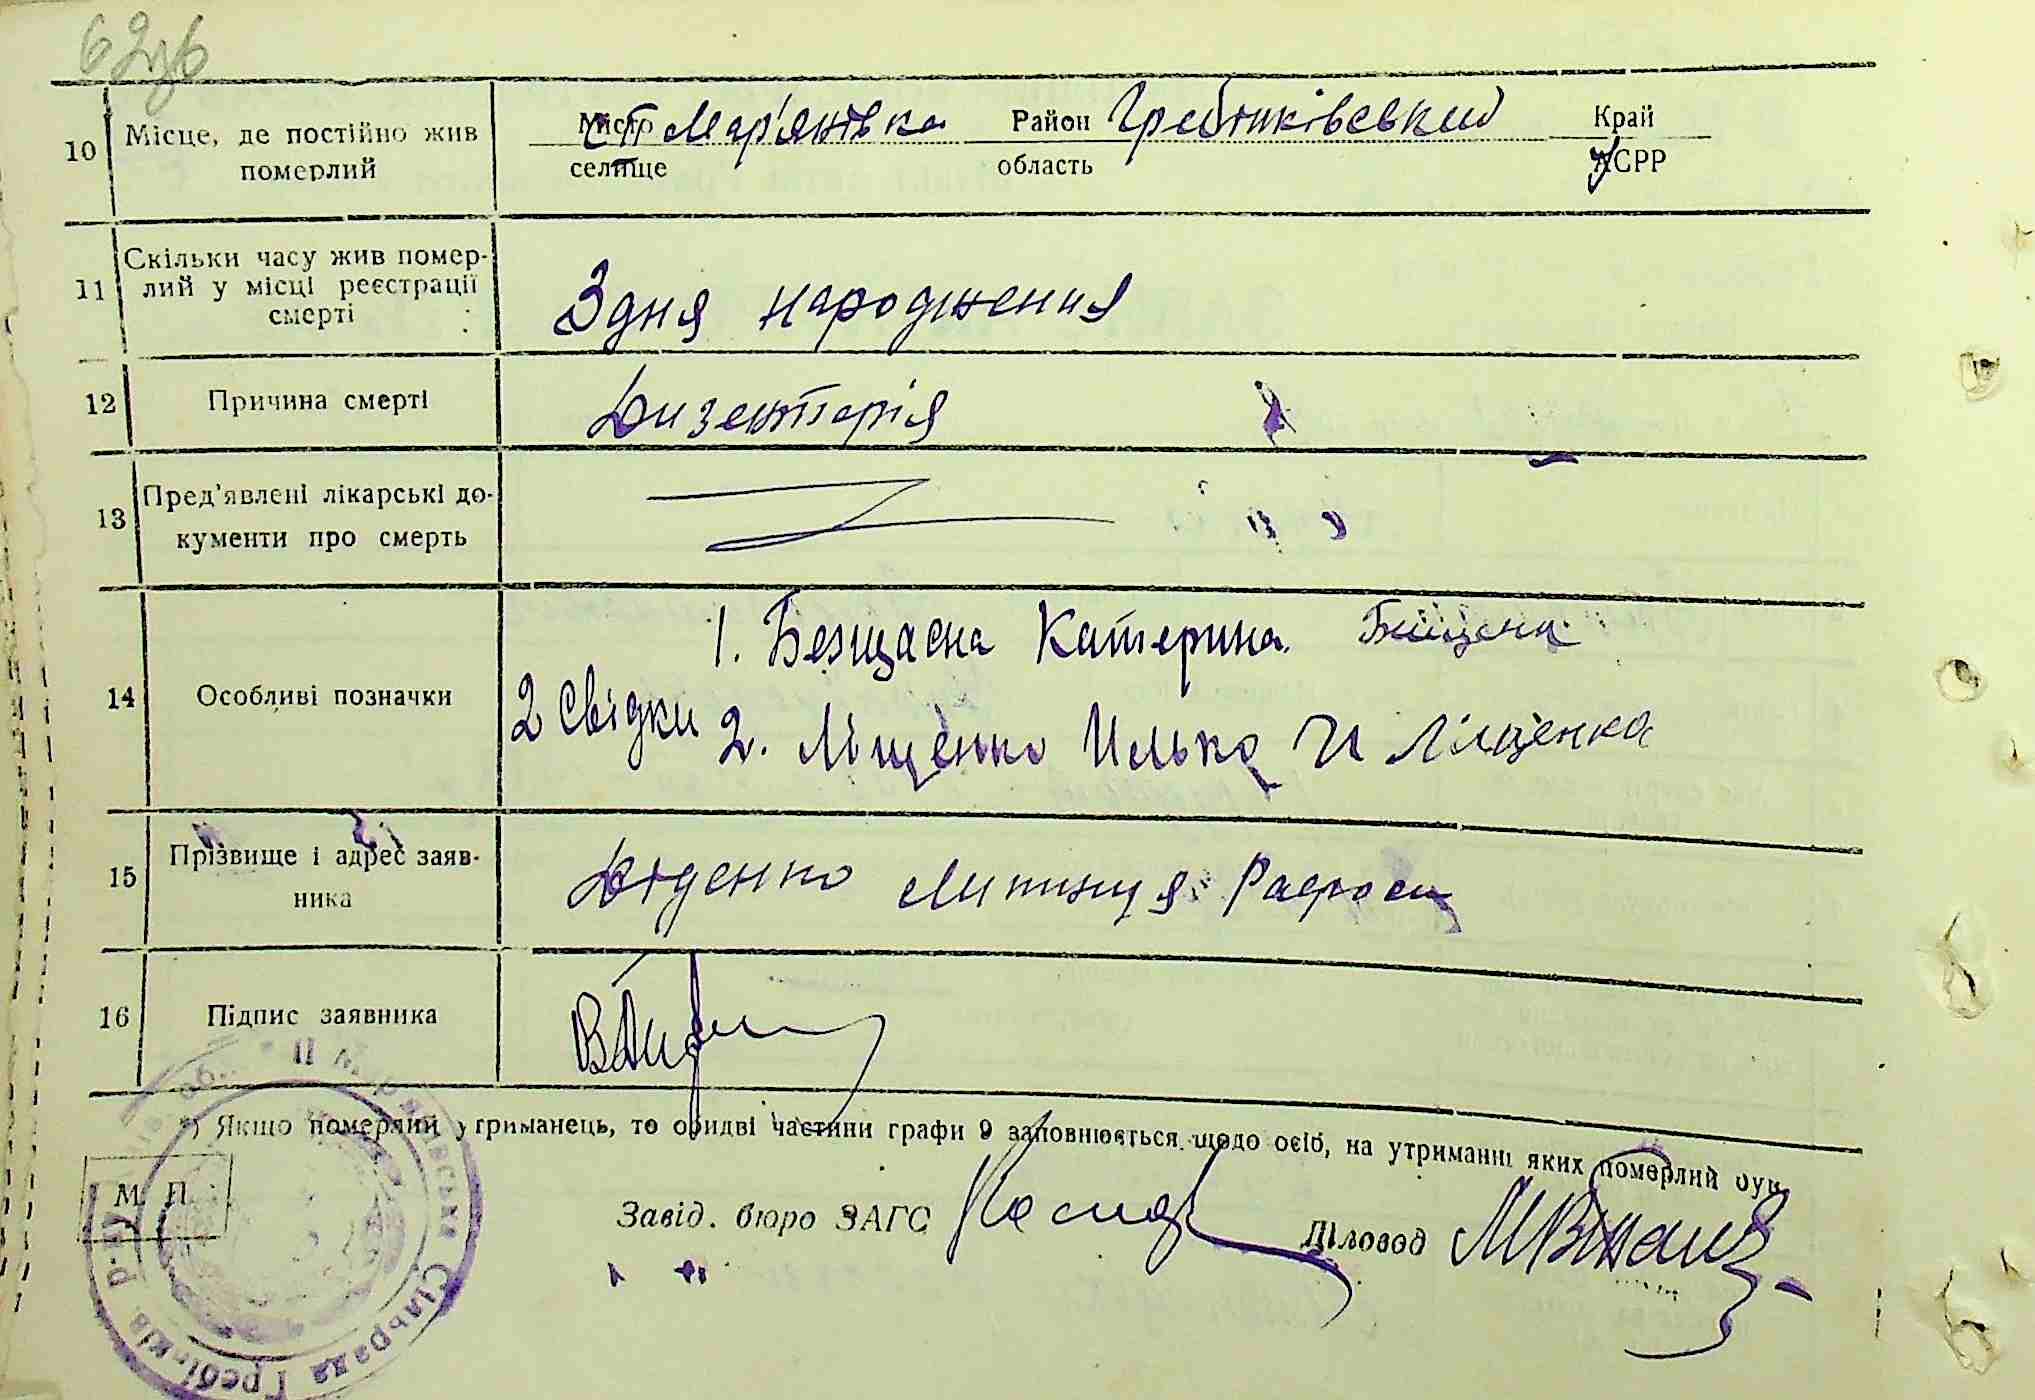 62зв
10 Місце, де постійно жив померлий
Місто с. Мар'янівка Район Гребінківський Край
селище область УСРР
11 Скільки часу жив помер-
лий у місці реєстрації
смерті
З дня народження
12 Причина смерті Дизентерія
13 Пред'явлені лікарські до-
кументи про смерть
14 Особливі позначки
1. Безщасна Катерина.
2 Свідки 2. Ліщенко Илько И Ліщенко
15 Прізвище і адрес заяв-
ника
Діденко
16 Підпис заявника
*) Якщо померлий утриманець, то обидві частини графи 9 заповнюється щодо осіб, на утриманні яких померлий був.
М. П.
Завід. бюро ЗАГС Діловод
Мар'янівська Сільрада Гребінків. р-ну